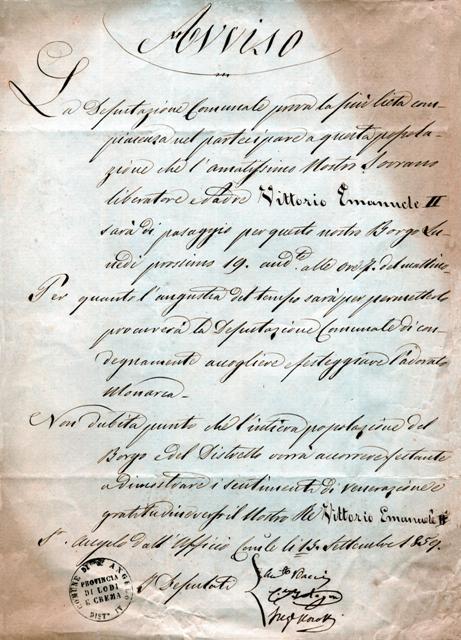 Avviso
La Deputazione Comunale prova la più lieta com-
piacenza nel partecipare a questa popola-
zione che l'amatissimo Nostro Sovrano
liberatore e Padre Vittorio Emanuele II
sarà di passaggio per questo nostro Borgo Lu-
nedì prossimo 19. and.te alle ore 7. del mattino.
Per quanto l'angustia del tempo sarà per permetterlo
procurerà la Deputazione Comunale di con-
degnamente accogliere e festeggiare l'adorato
Monarca.
Non dubita punto che l'intiera popolazione del
Borgo e del Distretto vorrà accorrere festante
a dimostrare i sentimenti di venerazione e
gratitudine verso il Nostro Re Vittorio Emanuele II.
S. Angelo dall'Ufficio Com.le li 15. Settembre 1859.
I Deputati
COMUNE DI S. ANGELO
PROVINCIA
DI LODI
E CREMA
DIST.